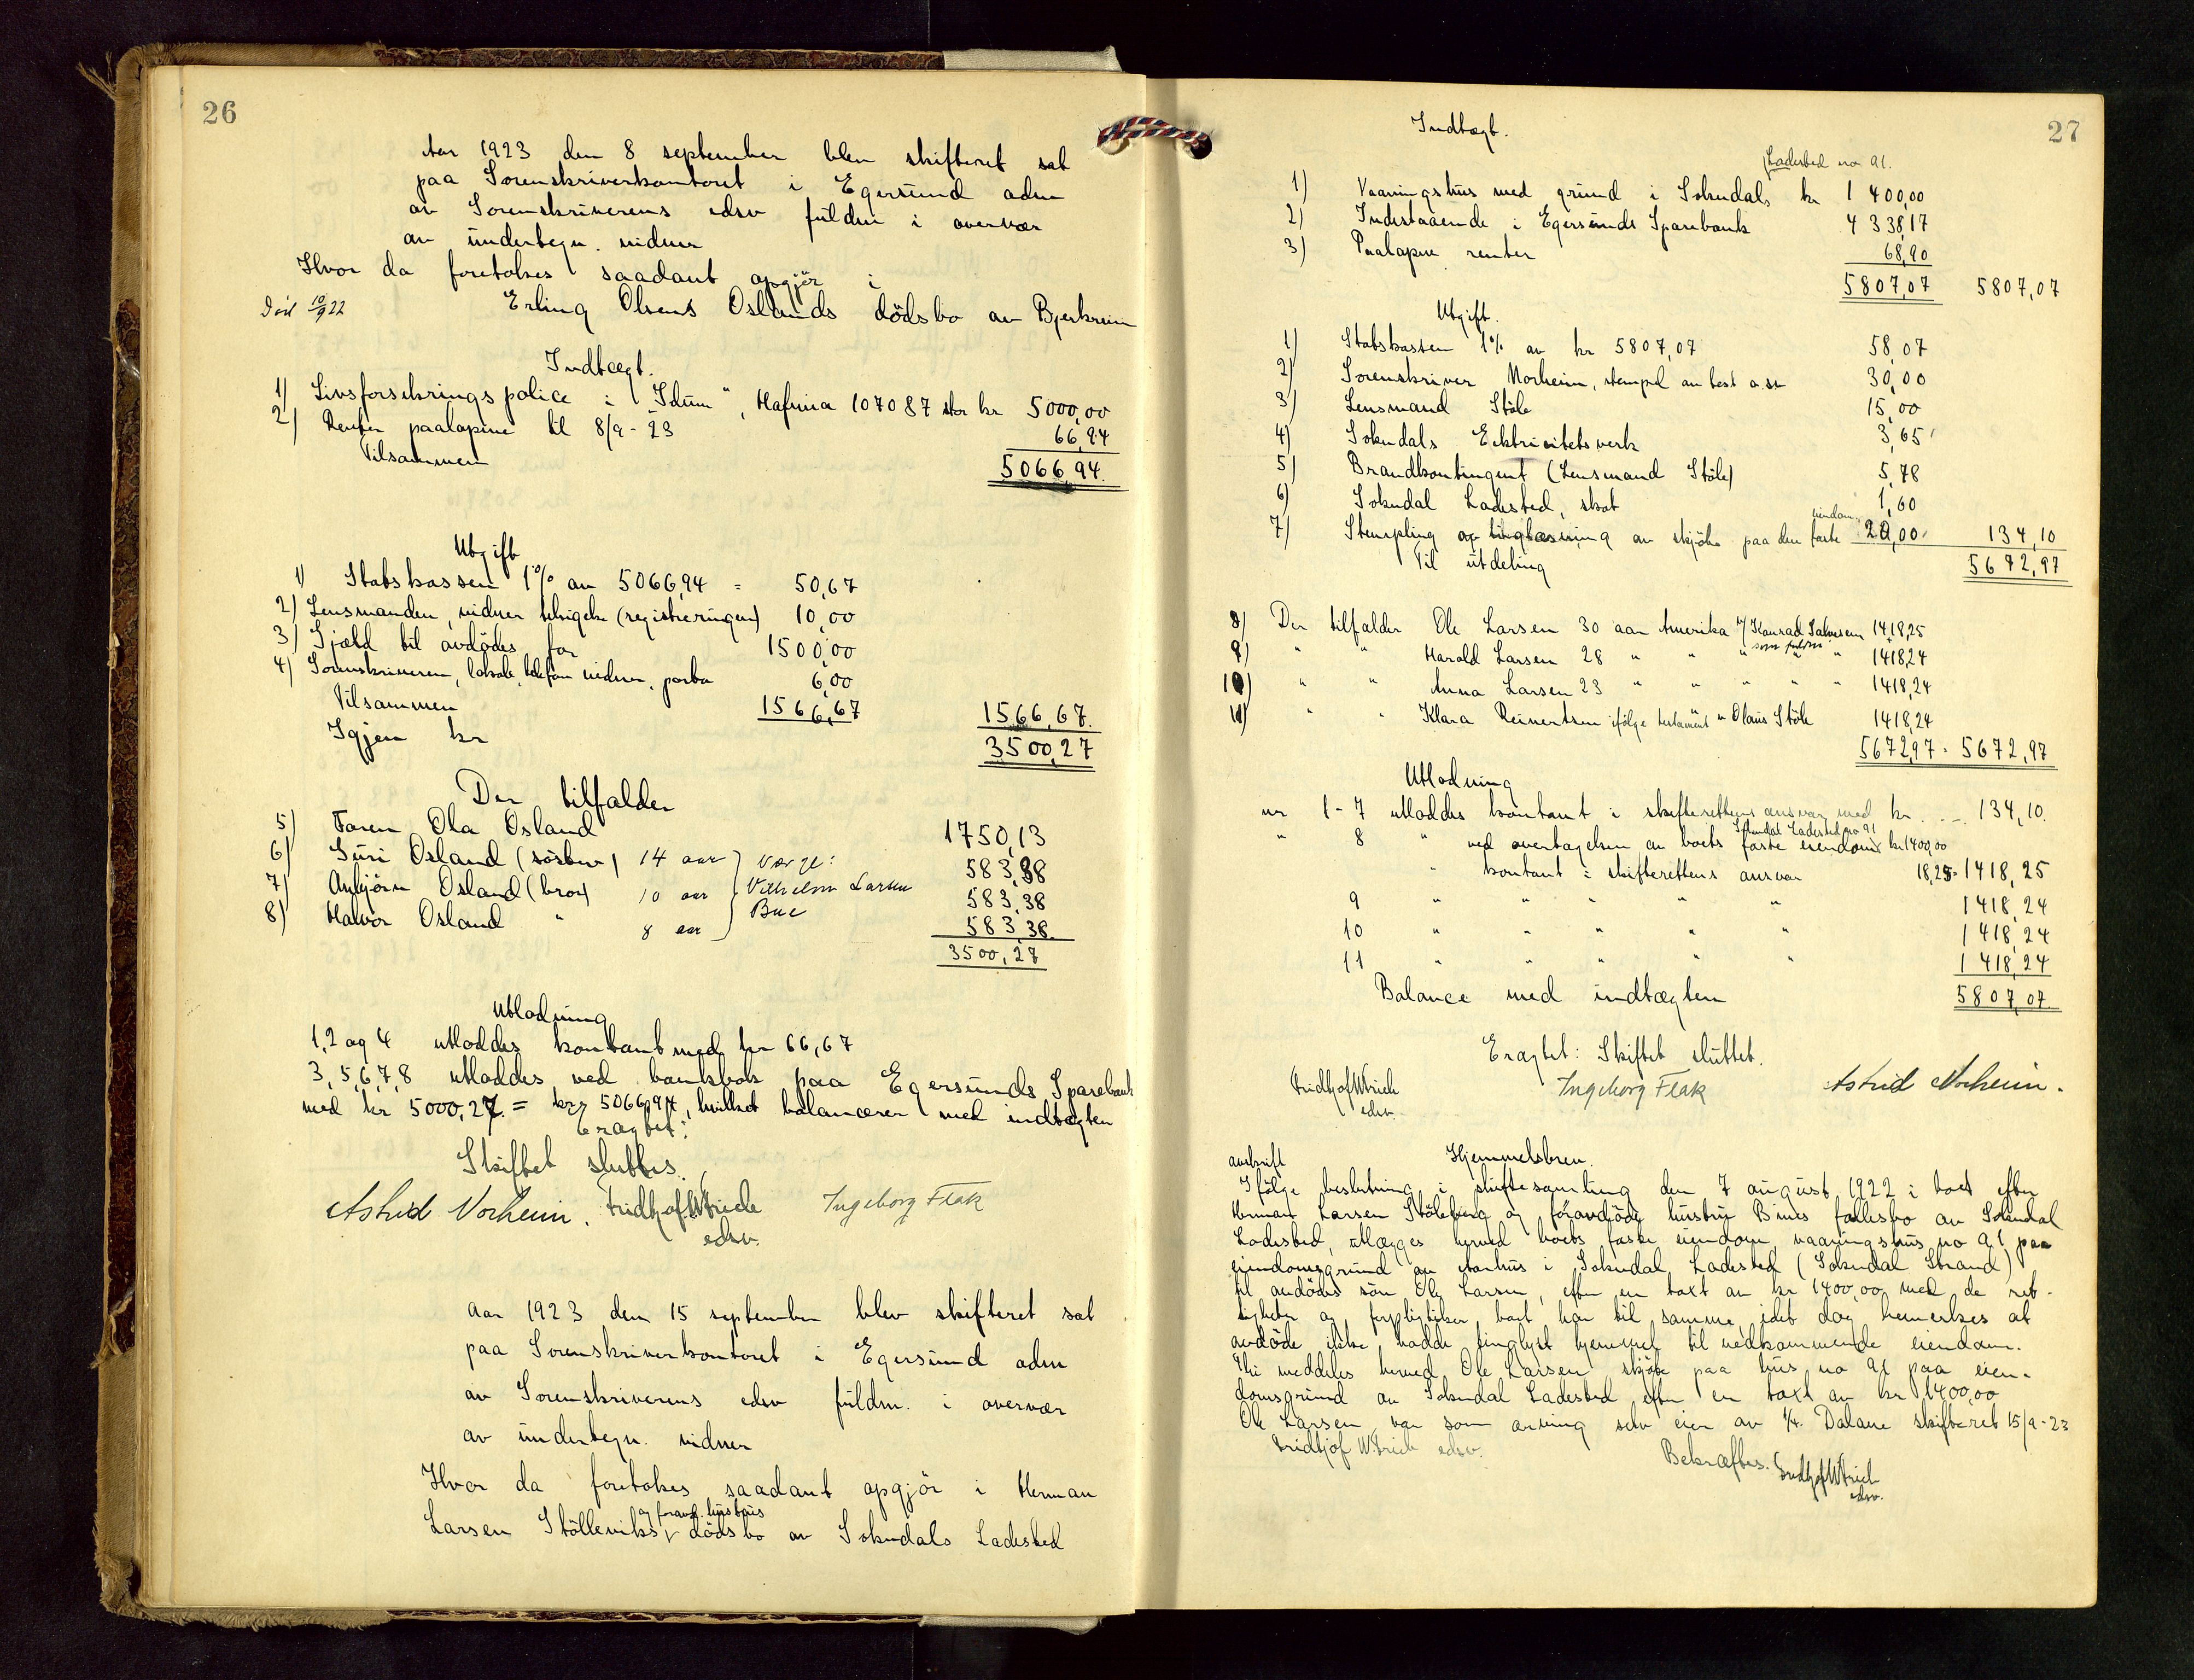 26
Aar 1923 den 8 september blev skifteret sat
paa Sorenskriverkontoret i Egersund adm
av Sorenskriverens edsv fuldm i overvær
av underteg. vidner
Hvor da foretokes saadant opgjör i
Död 10/9 22 Erling Olsens Oslands dödsbo av Bjerkreim
Indtægt.
1) Livsforsikringspolice i "Idun", Hafnia 107087 stor kr 5000,00
2) Renter paalöpne til 8/9-23 66,94
Tilsammen 5066,94.
Utgift
1) Statskassen 1% av 5066,94 = 50,67
2) Lensmanden, vidner tilsigelse (registreringen) 10,00
3) Gjæld til avdödes far 1500,00
4) Sorenskriveren, lokale, telefon vidner, porto 6,00
Tilsammen 1566,67 1566,67.
Igjen kr 3500,27
Der tilfalder
5) Faren Ola Osland 1750,13
6) Guri Osland (söster) 14 aar } Værge: 583,38
7) Anbjörn Osland (bror) 10 aar Vilhelm Larsen 583,38
8) Halvor Osland " 8 aar Bue 583,38.
3500,27
Utlodning
1,2 og 4 utloddes kontant med kr 66,67
3, 5,6,7,8 utloddes ved bankbok paa Egersunds Sparebank
med kr 5000,27 = kr 5066,94, hvilket balancerer med indtægten
Eragtet:
Skiftet sluttes.
Astrid Norheim. Fridtjof W Irich Ingeborg Flak
edsv.
Aar 1923 den 15 september blev skifteret sat
paa Sorenskriverkontoret i Egersund adm
av Sorenskriverens edsv fuldm. i overvær
av undertegn. vidner
Hvor da foretokes saadant opgjör i Herman
og foravd. hustrus
Larsen Stölleviks dödsbo av Sokndals Ladested
27
Indtægt.
Ladested no 91.
1) Vaaningshus med grund i Sokndals kr 1 400,00
2) Indestaaende i Egersunds Sparebank 4 338,17
3) Paalöpne renter 68,90
5807,07 5807,07
Utgift.
1) Statskassen 1% av kr 5807,07 58,07
2) Sorenskriver Norheim, stempel av test o.sv 30,00
3) Lensmand Stöle 15,00
4) Sokndals Ecktricitetsverk 3,65
5) Brandkontingent (Lensmand Stöle) 5,78
6) Sokndal Ladested, skat 1,60
eiendom.
7) Stempling og tinglæsning av skjöte paa den faste 20,00 134,10
Til utdeling 5672,97
8) Der tilfalder Ole Larsen 30 aar Amerika v/ Konrad Salvesen 1418,25
som fuldm
9) " " Harald Larsen 28 " " " " " 1418,24
10) " " Anna Larsen 23 " " " " " 1418,24
11) " " Klara Reinertsen ifölge testament v Olaus Stöle 1418,24
5672,97 = 5672,97
Utlodning
nr 1-7 utloddes kontant i skifterettens ansvar med kr... 134,10.
Sokndal Ladested no 91
" 8 " ved overtagelsen av boets faste eiendom kr 1400,00
" kontant i skifterettens ansvar 18,25 = 1418,25
9 " " " " " 1418,24
10 " " " " " 1418,24
11 " " " " " 1418,24
Balance med indtægten 5807,07
Eragtet: Skiftet sluttet.
Fridtjof W Irich Ingeborg Flak Astrid Norheim.
edsv.
avskrift Hjemmelsbrev.
Ifölge beslutning i skiftesamling den 7 august 1922 i boet efter
Herman Larsen Stöleberg og foravdöde hustru Bines fællesbo av Sokndal
Ladested, utlægges herved boets faste eiendom, vaaningshus no 91 paa
eiendomsgrund av Aarhus i Sokndal Ladested (Sokndal Strand)
til avdödes sön Ole Larsen, efter en taxt av kr 1400,00 med de ret-
tigheter og forpligtelser boet har til samme, idet dog bemerkes at
avdöde ikke hadde tinglyst hjemmel til vedkommende eiendom.
Thi meddeles herved Ole Larsen skjöte paa hus no 91 paa eien-
domsgrund av Sokndal Ladested efter en taxt av kr 1400,00
Ole Larsen var som arving selv eier av 1/4. Dalane skifteret 15/9-23
Fridtjof W. Irich edsv. Bekræftes. Fridtjof W Irich
edsv.